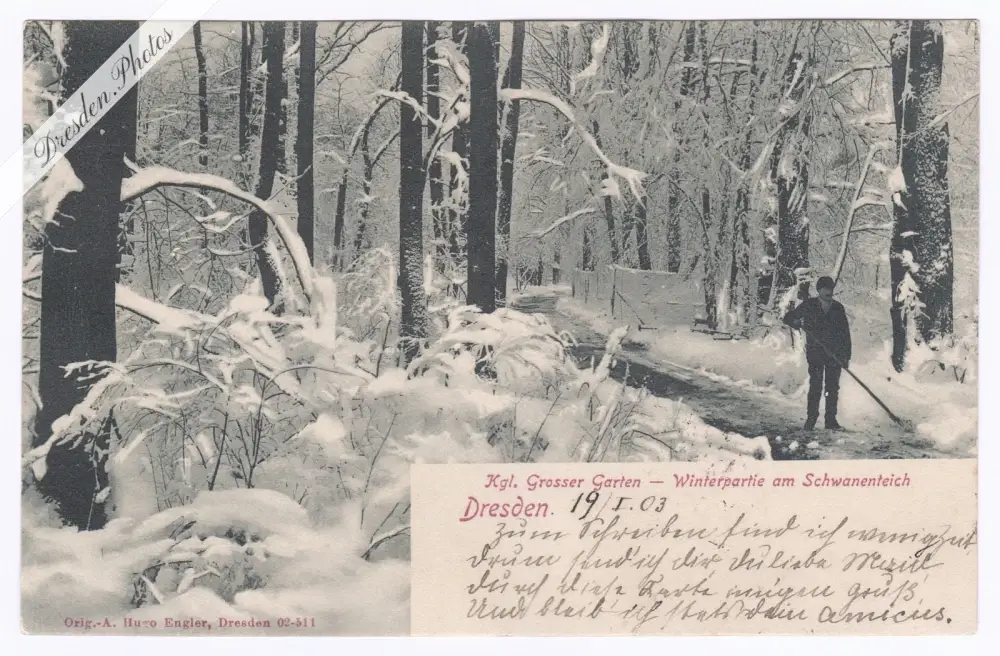 Dresden.Photos
Kgl. Grosser Garten — Winterpartie am Schwanenteich
Dresden. 19/I.03
Zum Schreiben find ich wenig Zeit
Drum send ich dir du liebe Maid
durch diese Karte innigen Gruß,
Und bleib' ich stets dein amicus.
Orig.-A. Hugo Engler, Dresden 02-511